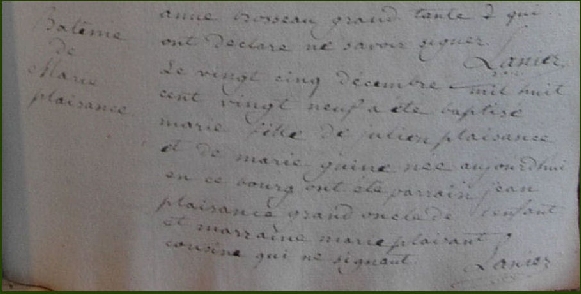 anne brosseau grand tante & qui
ont declare ne savoir signer.
Lanier
Batême
de
Marie
plaisance
Le vingt cinq décembre mil huit
cent vingt neuf a ete baptisé
marie fille de julien plaisance
et de marie guine nee aujourdhui
en ce bourg ont été parrain jean
plaisance grand oncle de lenfant
et marraine marie plaisant
cousine qui ne signent.
Lanier